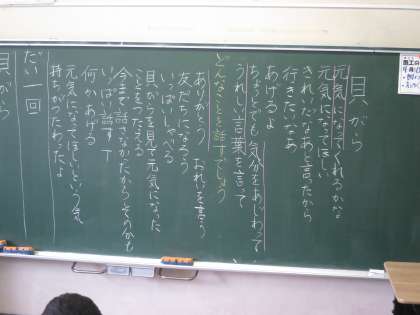 貝がら
元気になってくれるかな
元気になってほしい
きれいだなあと言ったから
行きたいなあ
あげるよ
ちょっとでも気分をあじわって
うれしい言葉を言って
どんなことを話すでしょう
ありがとう おれいを言う
友だちになろう
いっぱいしゃべる
貝がらを見て元気になった
ことをつたえる
今まで話さなかったからそのかも
いっぱい話す
何かあげる
元気になってほしいという気
持ちがったわったよ
だい一回
貝がら